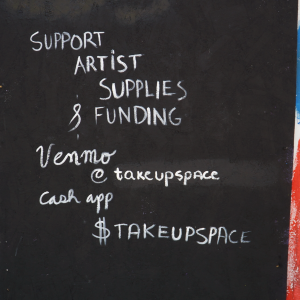 SUPPORT
ARTIST
SUPPLIES
& FUNDING
Venmo
@ takeupspace
Cash app
$TAKEUPSPACE